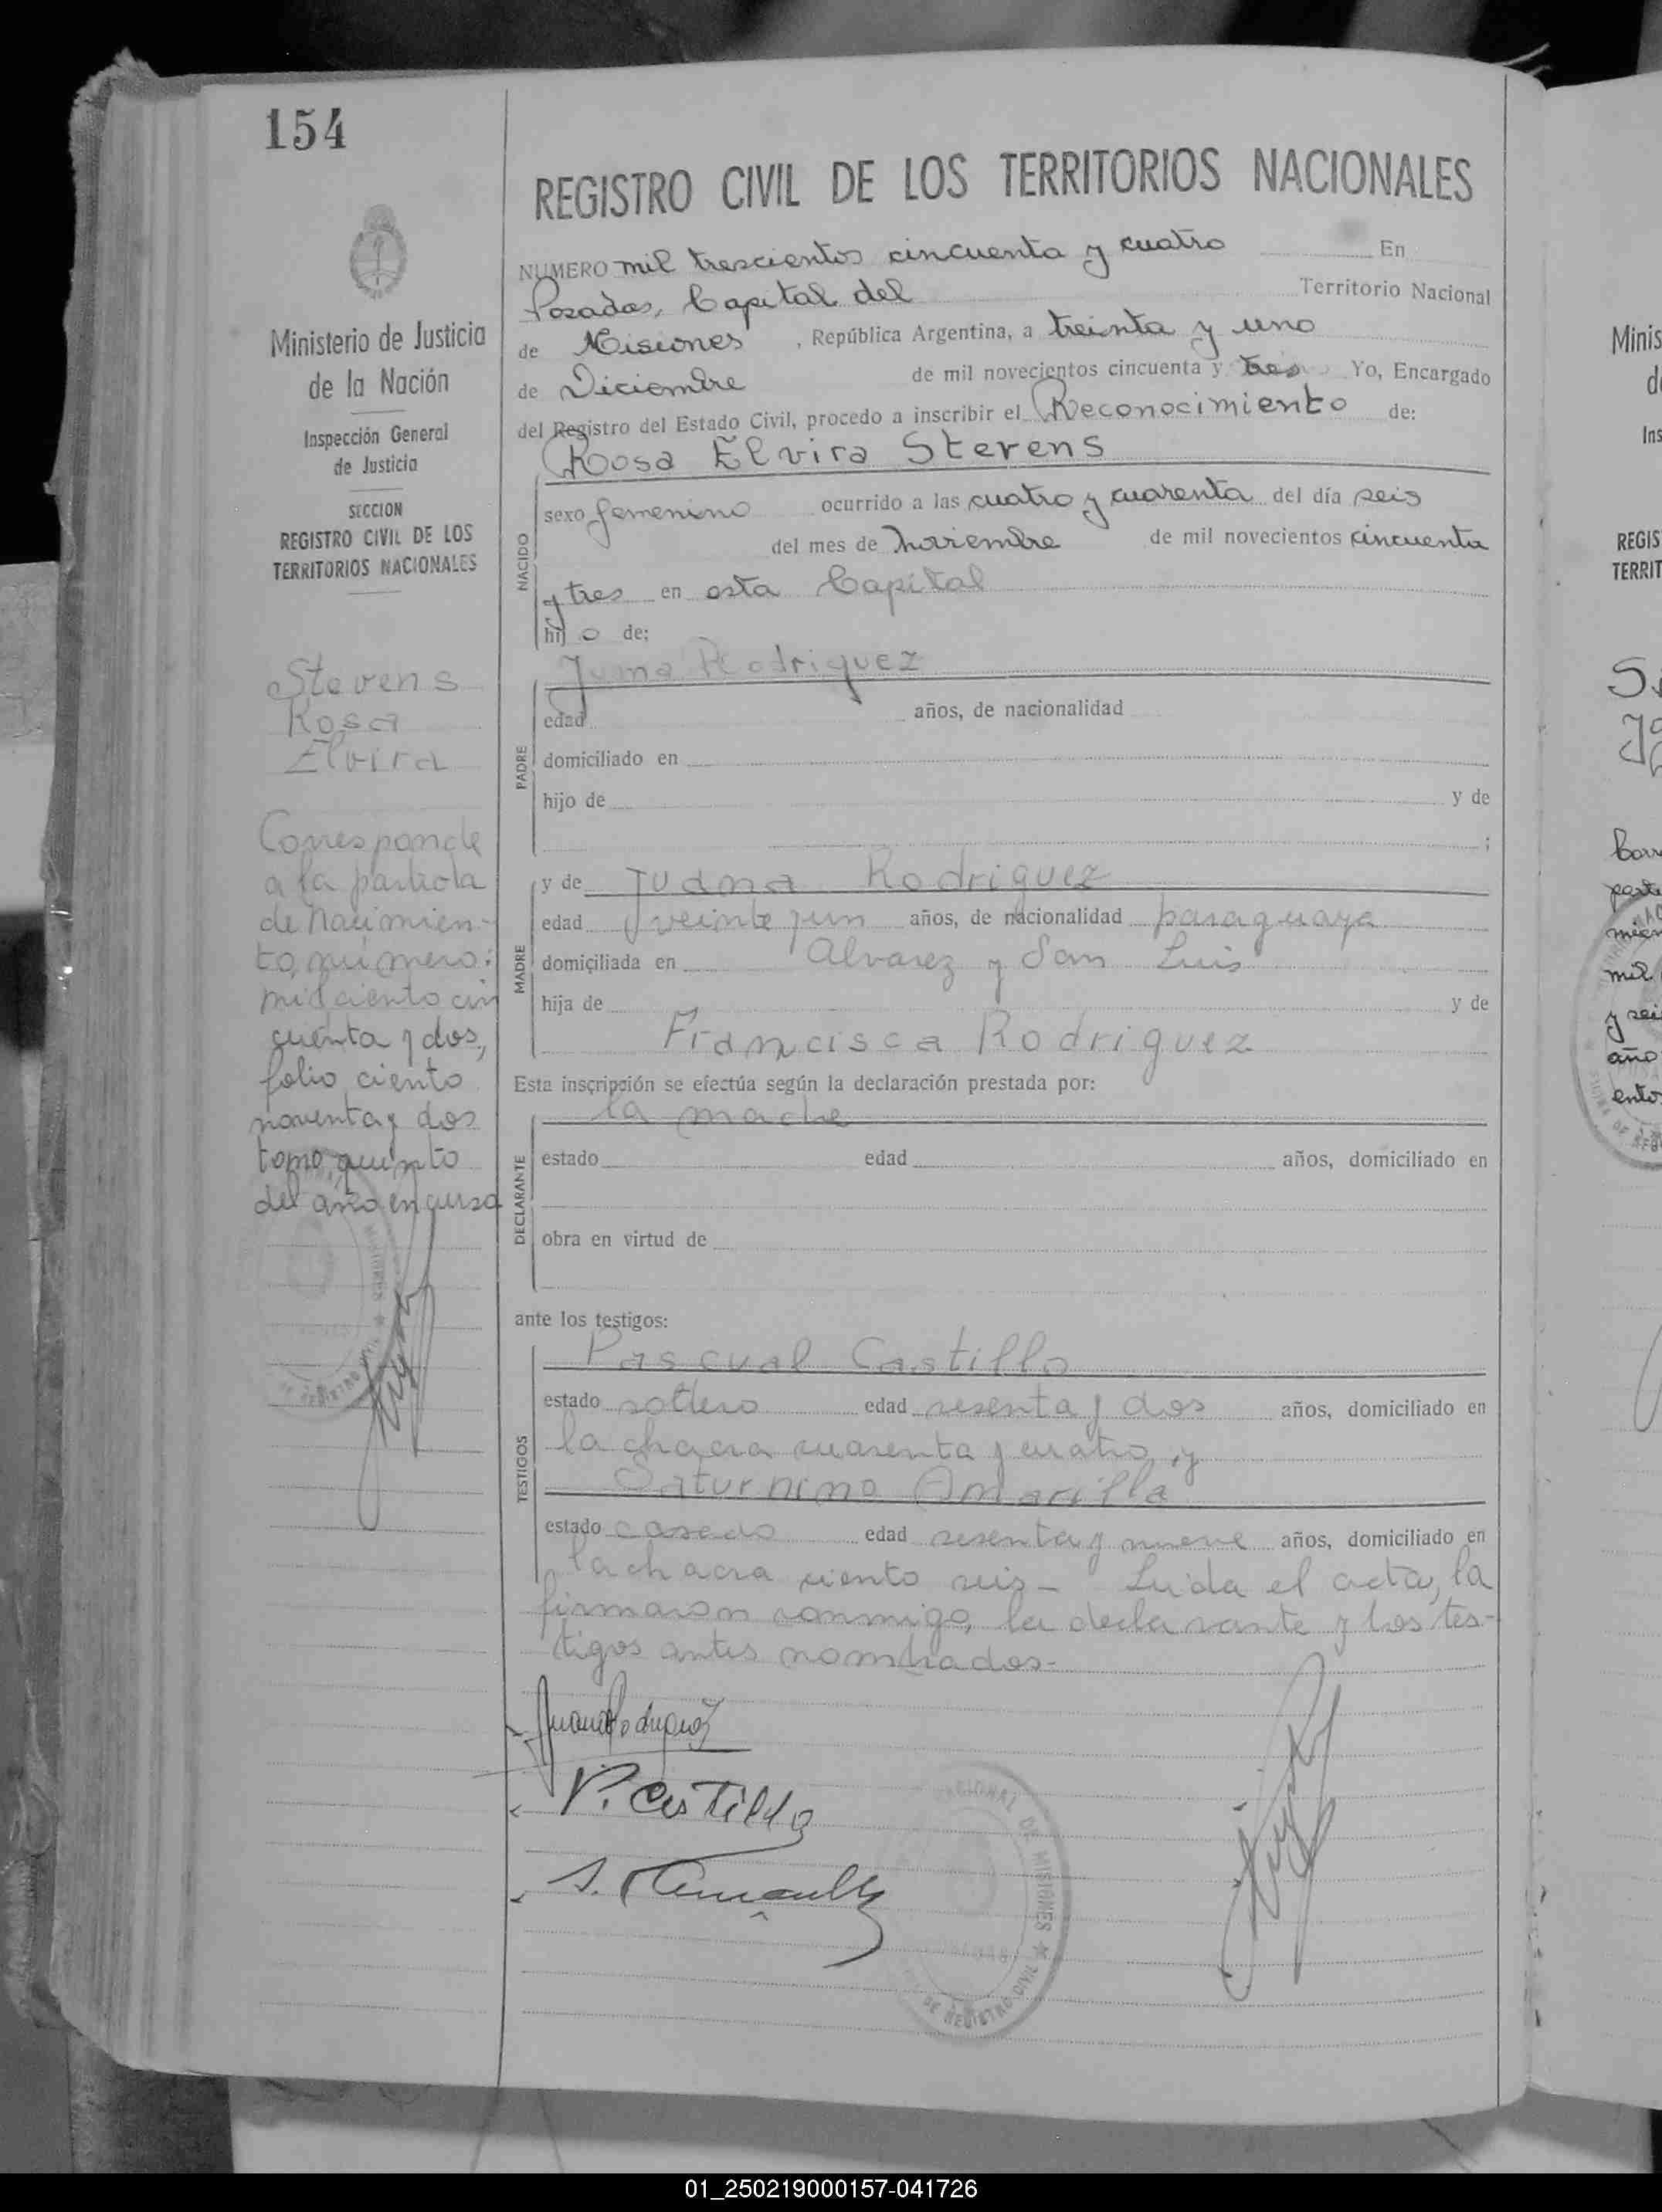 154
Ministerio de Justicia
de la Nación
Inspección General
de Justicia
SECCION
REGISTRO CIVIL DE LOS
TERRITORIOS NACIONALES
Stevens
Rosa
Elvira
Corresponde
a la partida
de nacimien-
to, número:
mil ciento cin
cuenta y dos,
folio ciento
noventa y dos
tomo, quinto
del año en curso
REGISTRO CIVIL DE LOS TERRITORIOS NACIONALES
NUMERO mil trescientos cincuenta y cuatro En
Posadas, Capital del Territorio Nacional
de Misiones , República Argentina, a treinta y uno
de Diciembre de mil novecientos cincuenta y tres Yo, Encargado
del Registro del Estado Civil, procedo a inscribir el Reconocimiento de:
Rosa Elvira Stevens
NACIDO
sexo femenino ocurrido a las cuatro y cuarenta del día seis
del mes de noviembre de mil novecientos cincuenta
y tres en esta Capital
hij o de:
Juana Rodriguez
PADRE
edad años, de nacionalidad
domiciliado en
hijo de y de
;
MADRE
y de Juana Rodriguez
edad veinte y un años, de nacionalidad paraguaya
domiciliada en Alvarez y San Luis
hija de y de
Francisca Rodriguez
Esta inscripción se efectúa según la declaración prestada por:
la madre
DECLARANTE
estado edad años, domiciliado en
obra en virtud de
ante los testigos:
TESTIGOS
Pascual Castillo
estado soltero edad sesenta y dos años, domiciliado en
la chacra cuarenta y cuatro, y
Saturnino Amarilla
estado casado edad sesenta y nueve años, domiciliado en
la chacra ciento seis - Leida el acta, la
firmaron conmigo, la declarante y los tes-
tigos antes nombrados-
Juana Rodriguez
P. Castillo
S. Amarilla
NACIONAL DE MISIONES ★
DE REGISTRO CIVIL
Minis
REGIS
TERRIT
01_250219000157-041726